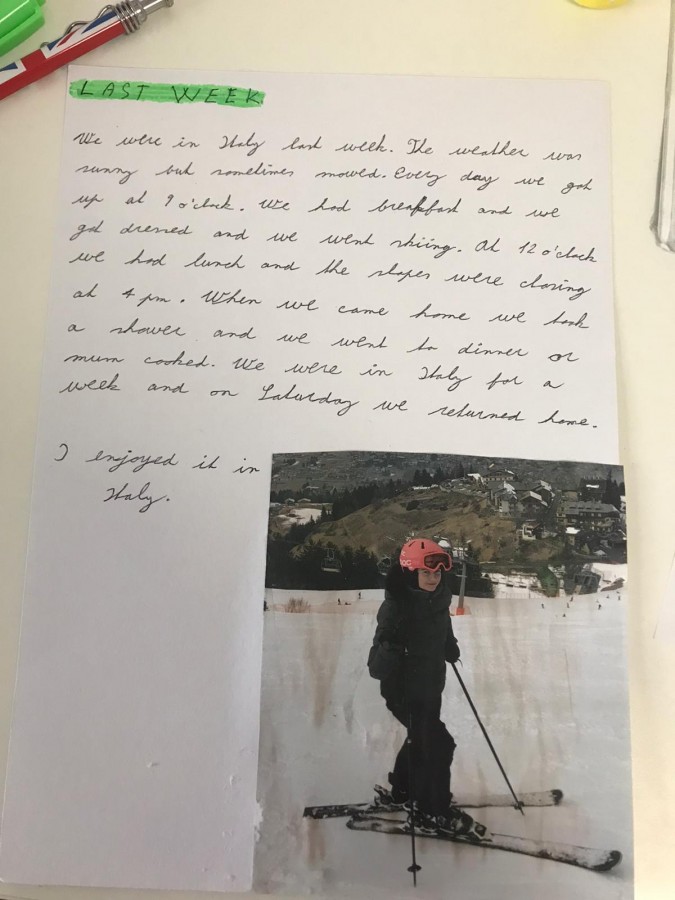 LAST WEEK
We were in Italy last week. The weather was
sunny but sometimes snowed. Every day we got
up at 9 o'clock. We had breakfast and we
got dressed and we went skiing. At 12 o'clock
we had lunch and the slopes were closing
at 4 pm. When we came home we took
a shower and we went to dinner or
mum cooked. We were in Italy for a
week and on Saturday we returned home.
I enjoyed it in
Italy.